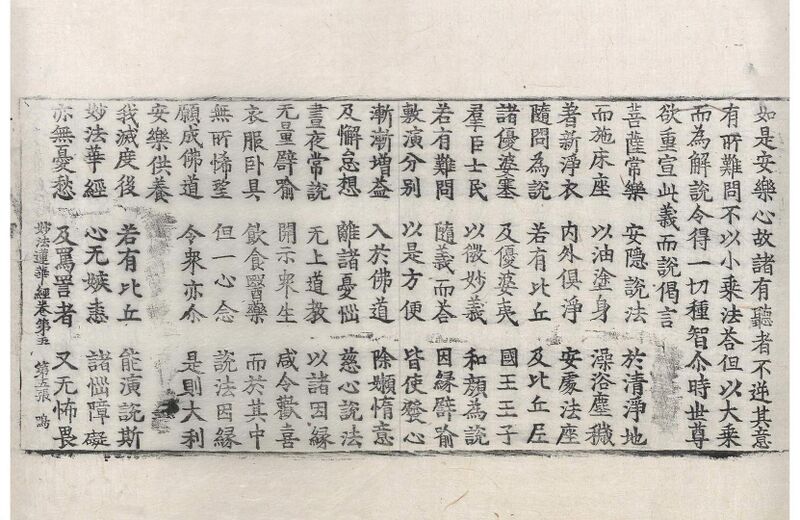 如是安樂心故諸有聽者不逆其意
有所難問不以小乘法荅但以大乘
而為解說令得一切種智尒時世尊
欲重宣此義而說偈言
菩薩常樂　安隱說法　於清淨地
而施床座　以油塗身　澡浴塵穢
著新淨衣　內外俱淨　安處法座
隨問為說　若有比丘　及比丘尼
諸優婆塞　及優婆夷　國王王子
羣臣士民　以微妙義　和顏為說
若有難問　隨義而荅　因緣譬喻
敷演分別　以是方便　皆使發心
漸漸增益　入於佛道　除嬾惰意
及懈怠想　離諸憂惱　慈心說法
晝夜常說　无上道教　以諸因緣
无量譬喻　開示眾生　咸令歡喜
衣服臥具　飲食醫藥　而於其中
無所悕望　但一心念　說法因緣
願成佛道　令眾亦尒　是則大利
安樂供養
我滅度後　若有比丘　能演說斯
妙法華經　心无嫉恚　諸惱障礙
亦無憂愁　及罵詈者　又无怖畏
妙法蓮華經卷第五　第五張　鳴